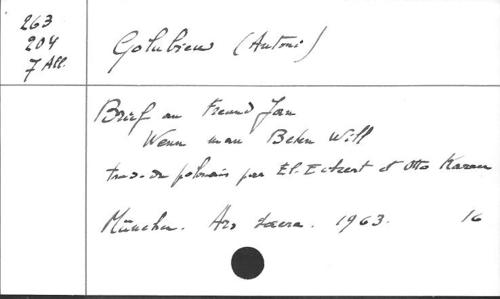 263
204
7 All.
Golubiew (Antoni)
Brief an Freund Jan
Wenn man Beten Will
trad. du polonais par El. Eckert et Otto Karau
München. Ars Sacra. 1963. 16